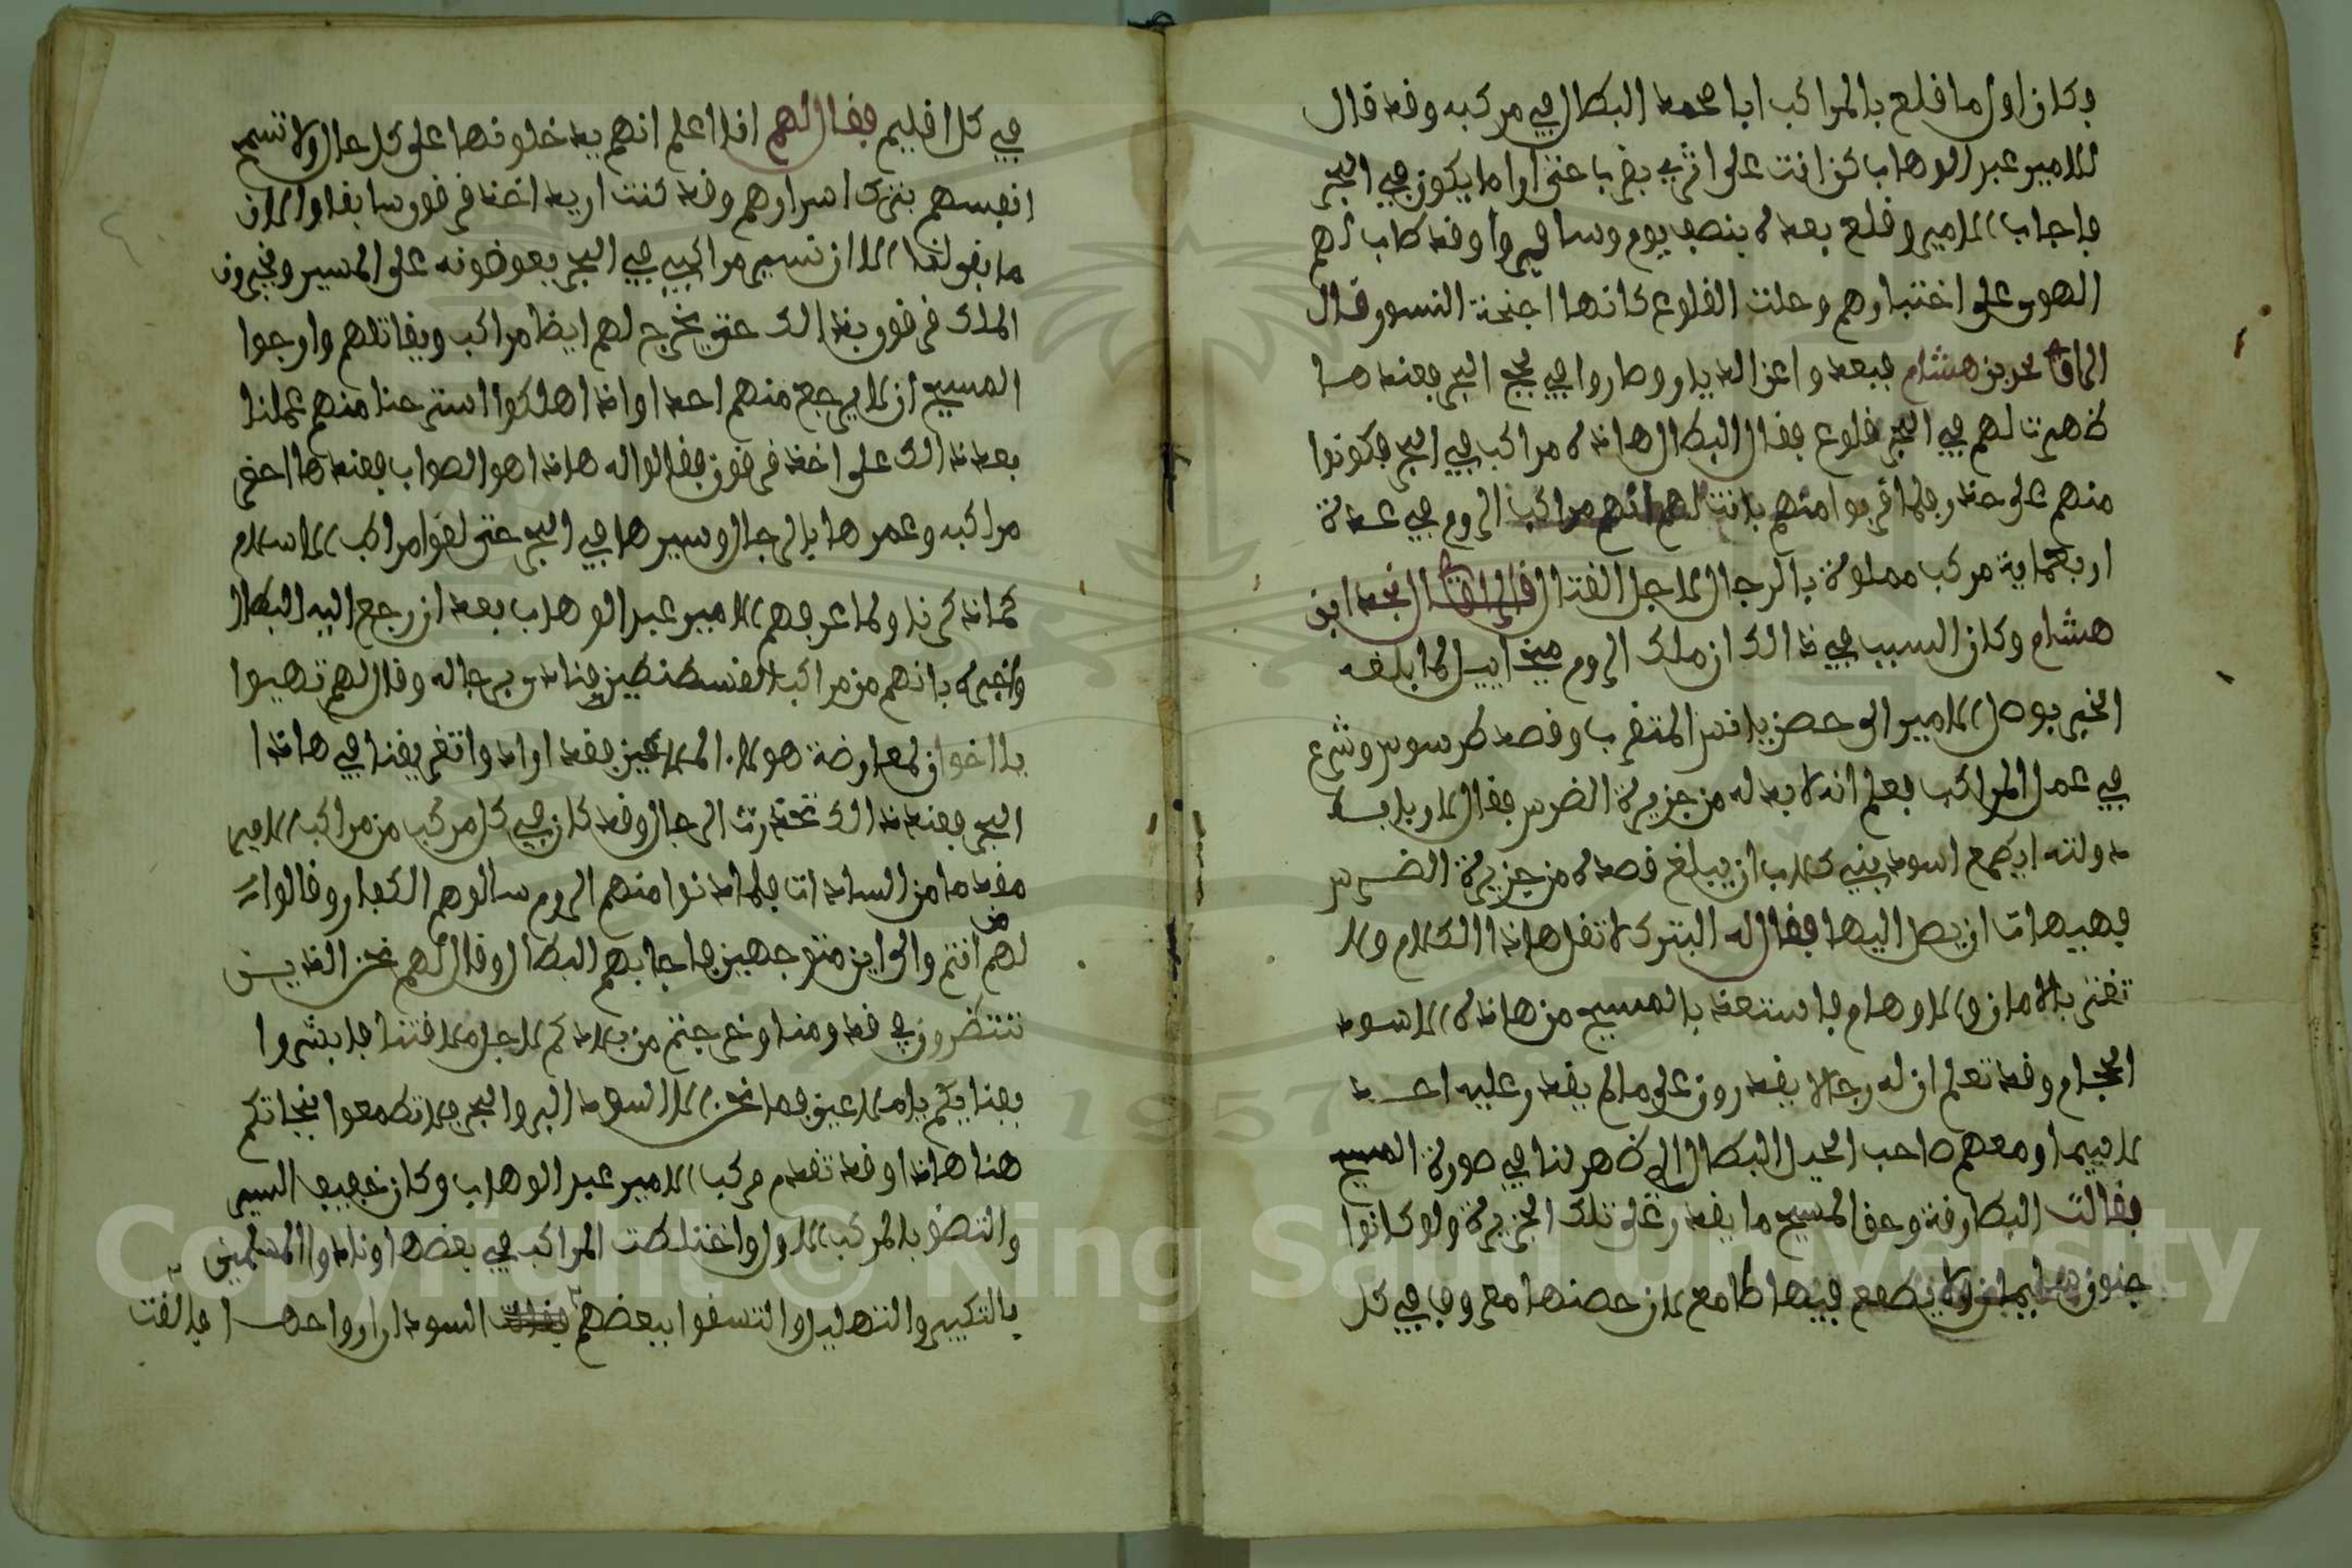 وكان اول ما فلع بالمراكب ابا محمد البطال في مركبه وقد قال
للامير عبد الوهاب كن انت على اثري بقربا عني اوا ما يكون في البحر
فاجاب الامير وقلع بعده بنصف يوم وسافروا وقد طاب لهم
الهوى على اختيارهم وحلت القلوع كانها اجنحة النسور قال
نجد بن هشام فبعدوا عن الديار وصاروا في لجج البحر فعندها
ظهرت لهم في البحر قلوع فقال البطال هاذه مراكب في البحر فكونوا
منهم على حذر فلما قربوا منهم بانت لهم انهم مراكب الروم في عدة
اربعماية مركب مملوة بالرجال لاجل القتال قال نجد ابن
هشام وكان السبب في ذالك ان ملك الروم ميخاييل لما بلغه
الخبر بوصل الامير الى حصن يانس المتقرب وقصد طرسوس وشرع
في عمل المراكب فعلم انه لا بد له من جزيرة الضرس فقال لارباب
دولته ايطمع اسود بني كلاب ان يبلغ قصده من جزيرة الضرس
فهيهات ان يصل اليها فقال له البترك لا تقل هاذا الكلام ولا
تغتر بالامان والاوهام فاستعذ بالمسيح من هاذه الاسود
الحجام وقد تعلم ان له رجالا يقدرون على مالم يقدر عليه احد
لاسيما ومعهم صاحب الحيل البطال الي ظهر لنا في صورة المسيح
فقالت البطارقة وحق المسيح ما يقدر على تلك الجزيرة ولو كانوا
جنون سليمان ولا يطمع فيها طامع لان حصنها معروف في كل
في كل اقليم فقال لهم انا اعلم انهم يدخلونها على كل حال ولا تسم
انفسهم بترك اسرارهم وقد كنت اريد اخذ قرقون سابقا والان
ما بقولنا الا ان تسير مراكبي في البحر يعوضونه على المسير ونخبرون
الملك قرقون بذالك حتى يخرج لهم ايضا مراكب ويقاتلهم وارجوا
المسيح ان لا يرجع منهم احد اواذا هلكوا استرحنا منهم عملنا
بعد ذالك على اخذ قرقون فقالوا له هاذا هو الصواب فعندها احضر
مراكبه وعمرها بالرجال وسيرها في البحر حتى لقوا مراكب الاسلام
كما ذكرنا ولما عرفهم الامير عبد الوهاب بعد ان رجع اليه البطال
واخبره بانهم من مراكب القسطنطين فنادى برجاله وقال لهم تهيوا
يا اخوان لمعارضة هولا الملاعين فقد اوادوا تغريقنا في هاذا
البحر فعند ذالك تحذرت الرجال وقد كان في كل مركب من مراكب الامير
مقدما من السادات فلما دنوا منهم الروم سالوهم الكفار وقالوا
لهم من انتم والى اين متوجهين فاجابهم البطال وقال لهم نحن الذين
تنتظرون في قدومنا وخرجتم من بلادكم لاجل ملاقتنا فابشروا
بفنايكم يا ملاعين فما نحن الا اسود البر والبحر فلا تطمعوا بنجاتكم
هنا هاذا وقد تقدم مركب الامير عبد الوهاب وكان خفيف السير
والتصق بالمركب الاول واختلطت المراكب في بعضها ونادوا المسلمين
بالتكبير والتهليل والتسقوا ببعضهم السود ارواحها فالفت